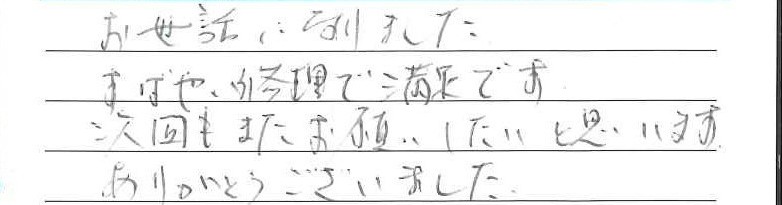 お世話になりました
すばやい修理で満足です
次回もまたお願いしたいと思います
ありがとうございました